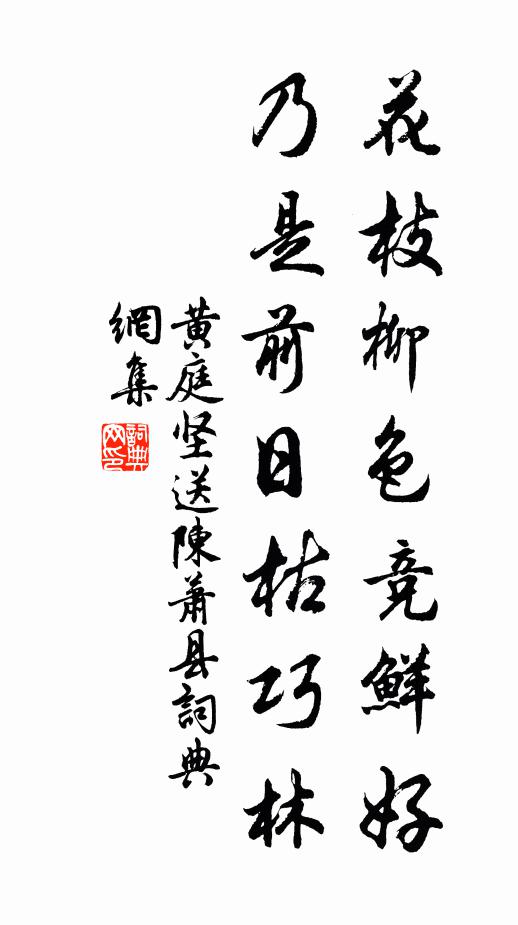 花枝柳色竞鲜好
乃是前日枯巧林
黄庭坚送陳萧县詞典
網集
詞典
网印